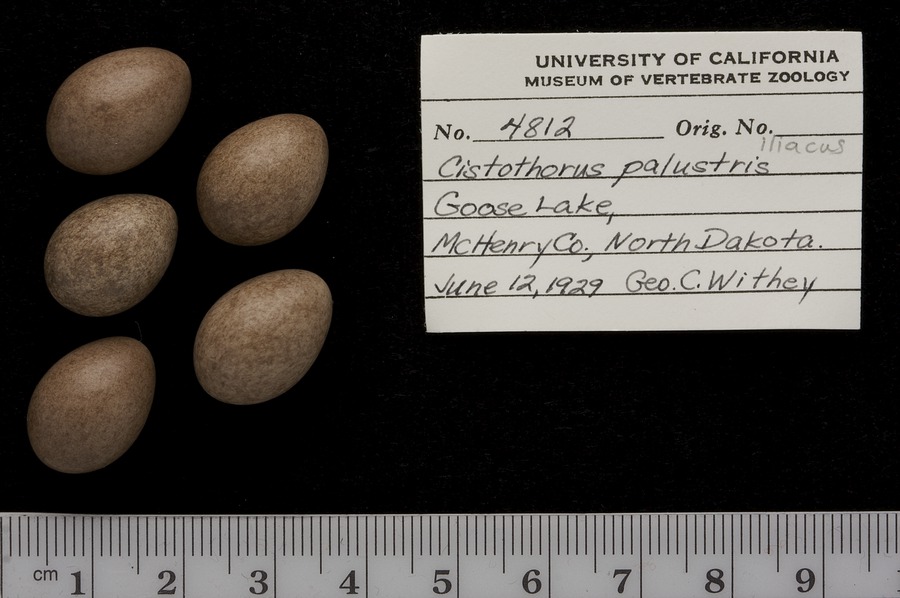 UNIVERSITY OF CALIFORNIA
MUSEUM OF VERTEBRATE ZOOLOGY
No. 4812 Orig. No.
iliacus
Cistothorus palustris
Goose Lake,
McHenry Co., North Dakota.
June 12, 1929 Geo. C. Withey
cm 1 2 3 4 5 6 7 8 9 1